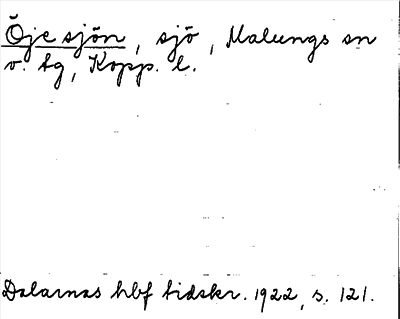 Öje sjön, sjö, Malungs sn
o. tg, Kopp. l.
Dalarnas hbf tidskr. 1922, s. 121.